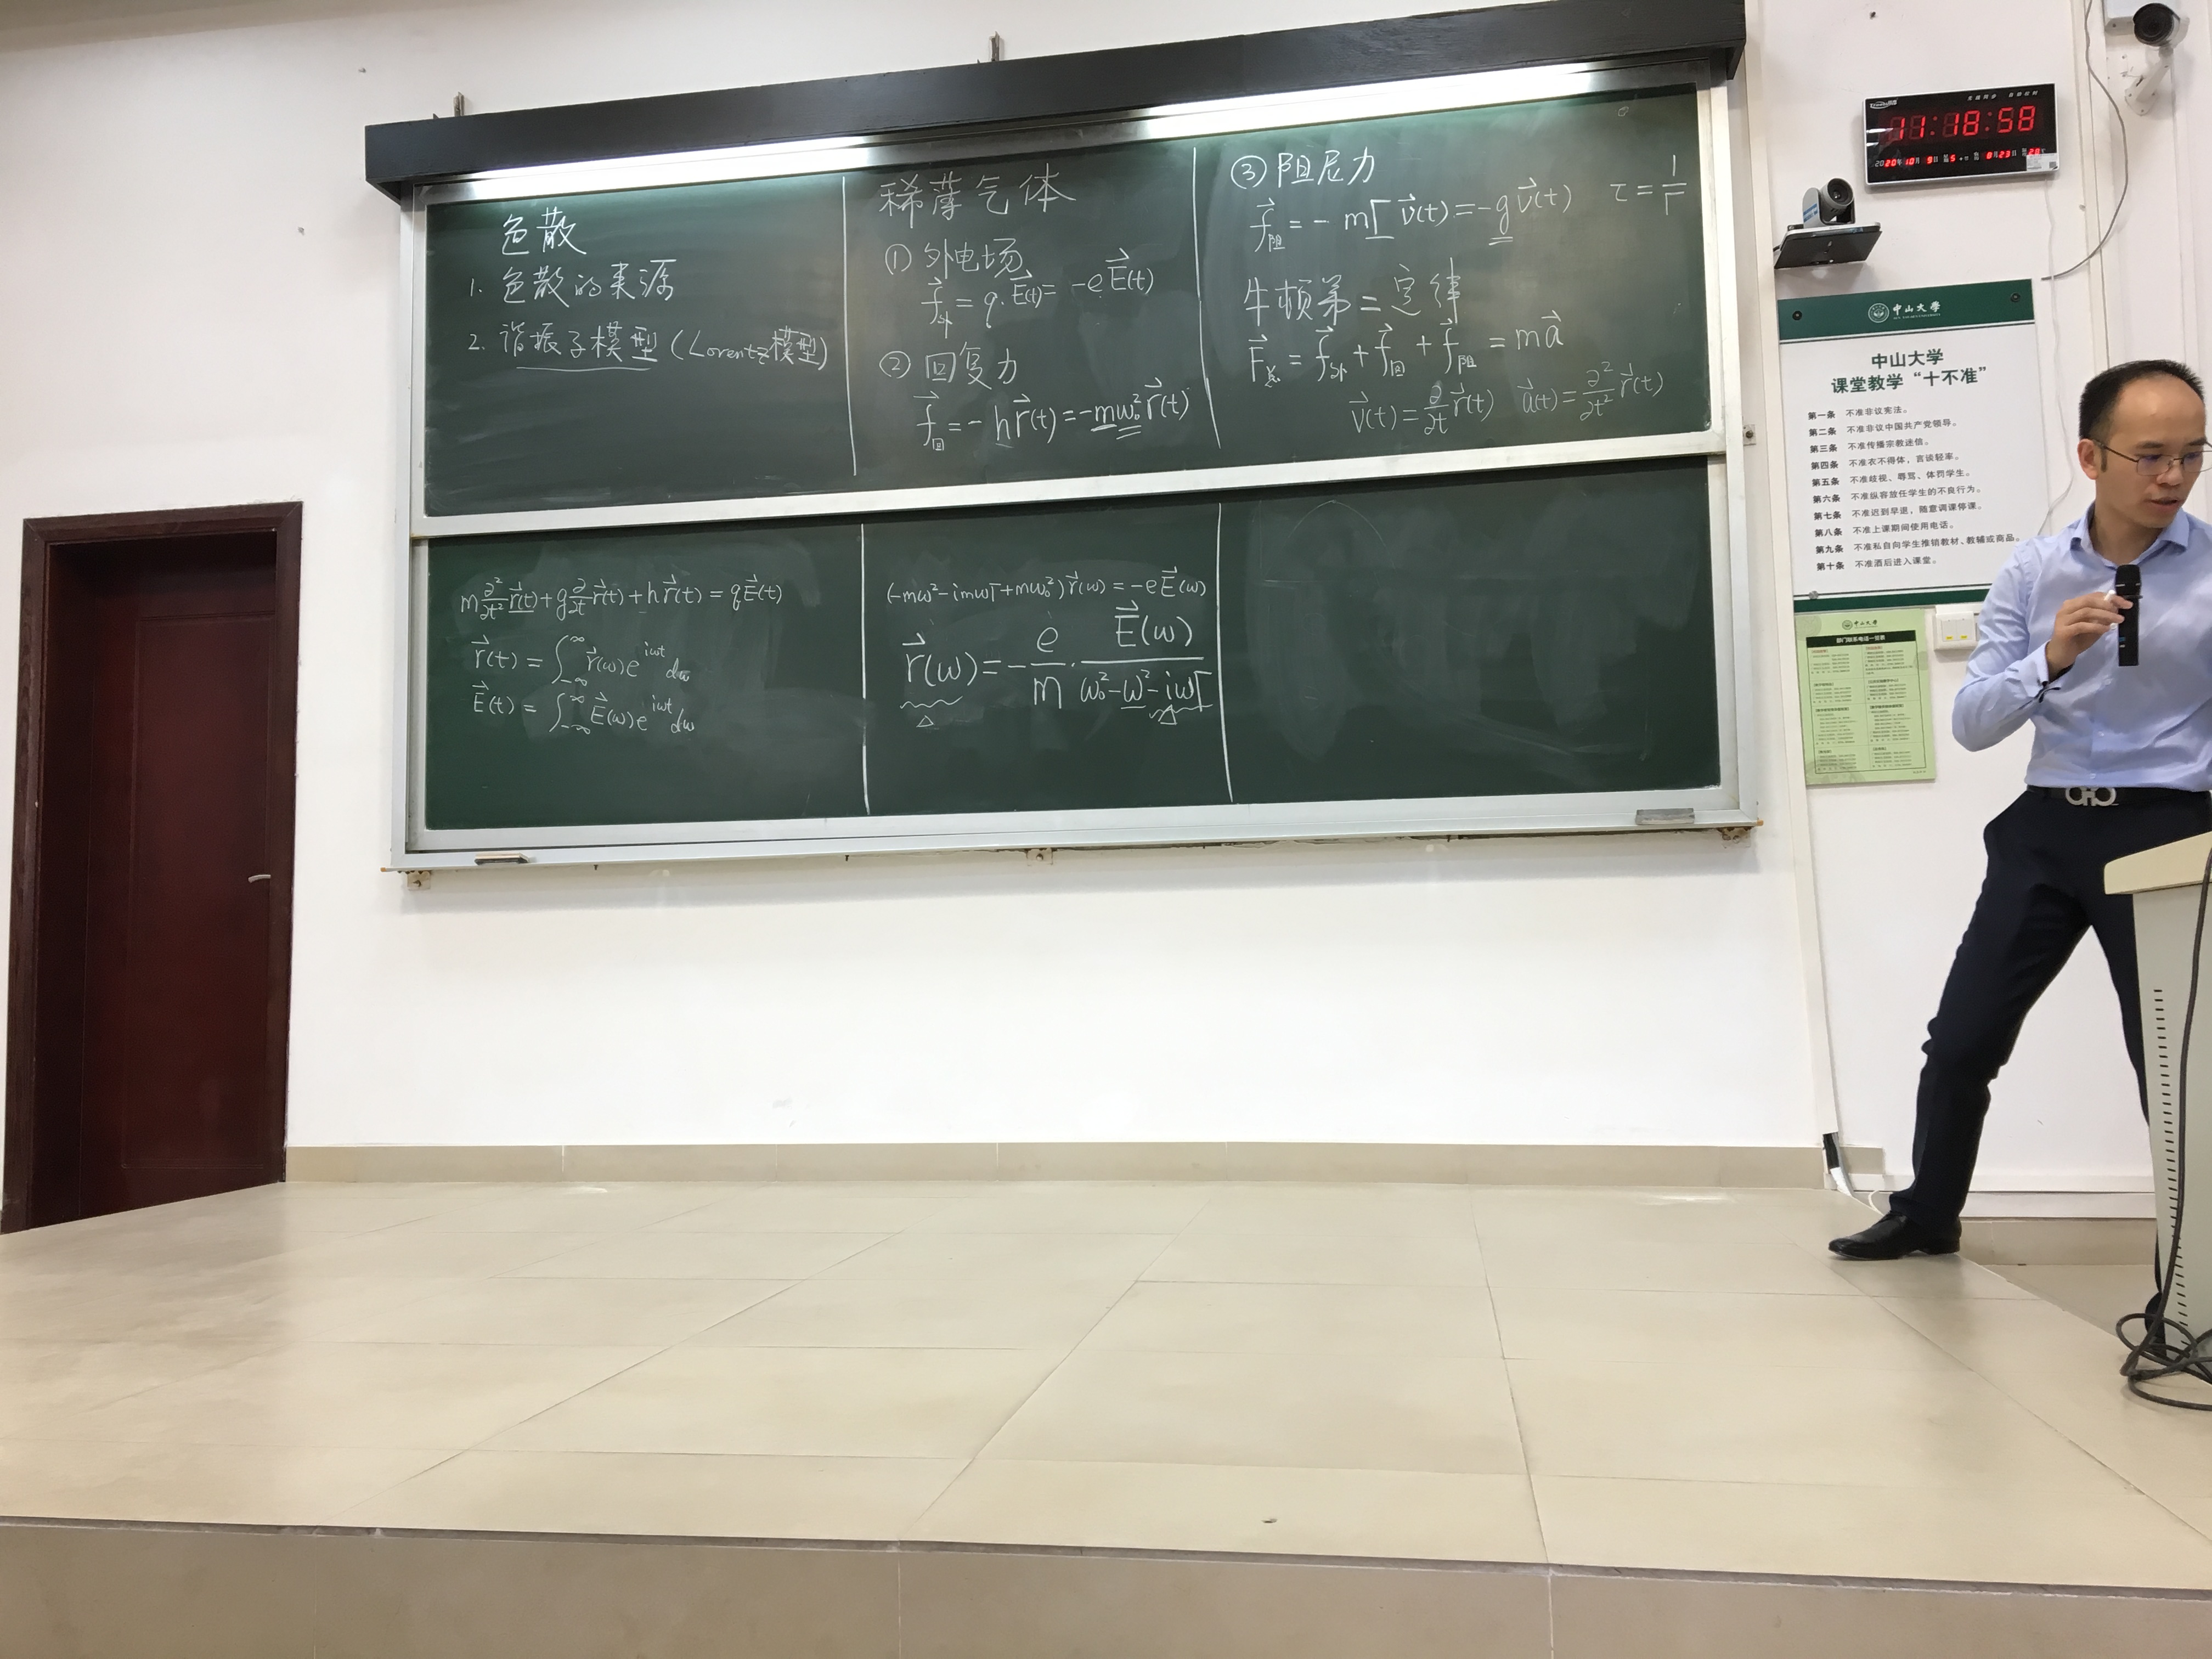 色散
1. 色散的来源
2. 谐振子模型(Lorentz模型)
稀薄气体
① 外电场
f⃗外 = q·E⃗(t) = -eE⃗(t)
② 回复力
f⃗回 = - hr⃗(t) = -mω₀²r⃗(t)
③ 阻尼力
f⃗阻 = - mΓv⃗(t) = -gv⃗(t) τ = 1/Γ
牛顿第二定律
F⃗总 = f⃗外 + f⃗回 + f⃗阻 = ma⃗
v⃗(t) = ∂/∂t r⃗(t) a⃗(t) = ∂²/∂t² r⃗(t)
m ∂²/∂t² r⃗(t) + g ∂/∂t r⃗(t) + hr⃗(t) = qE⃗(t)
r⃗(t) = ∫_{-∞}^{∞} r⃗(ω)e^{iωt} dω
E⃗(t) = ∫_{-∞}^{∞} E⃗(ω)e^{iωt} dω
(-mω² - imωΓ + mω₀²) r⃗(ω) = -eE⃗(ω)
r⃗(ω) = - e/m · E⃗(ω)/(ω₀² - ω² - iωΓ)
11:18:58
2020年10月 9日
中山大学
中山大学
课堂教学“十不准”
第一条 不准非议宪法。
第二条 不准非议中国共产党领导。
第三条 不准传播宗教迷信。
第四条 不准衣不得体，言谈轻率。
第五条 不准歧视、辱骂、体罚学生。
第六条 不准纵容放任学生的不良行为。
第七条 不准迟到早退，随意调课停课。
第八条 不准上课期间使用电话。
第九条 不准私自向学生推销教材、教辅或商品。
第十条 不准酒后进入课堂。
中山大学
部门联系电话一览表